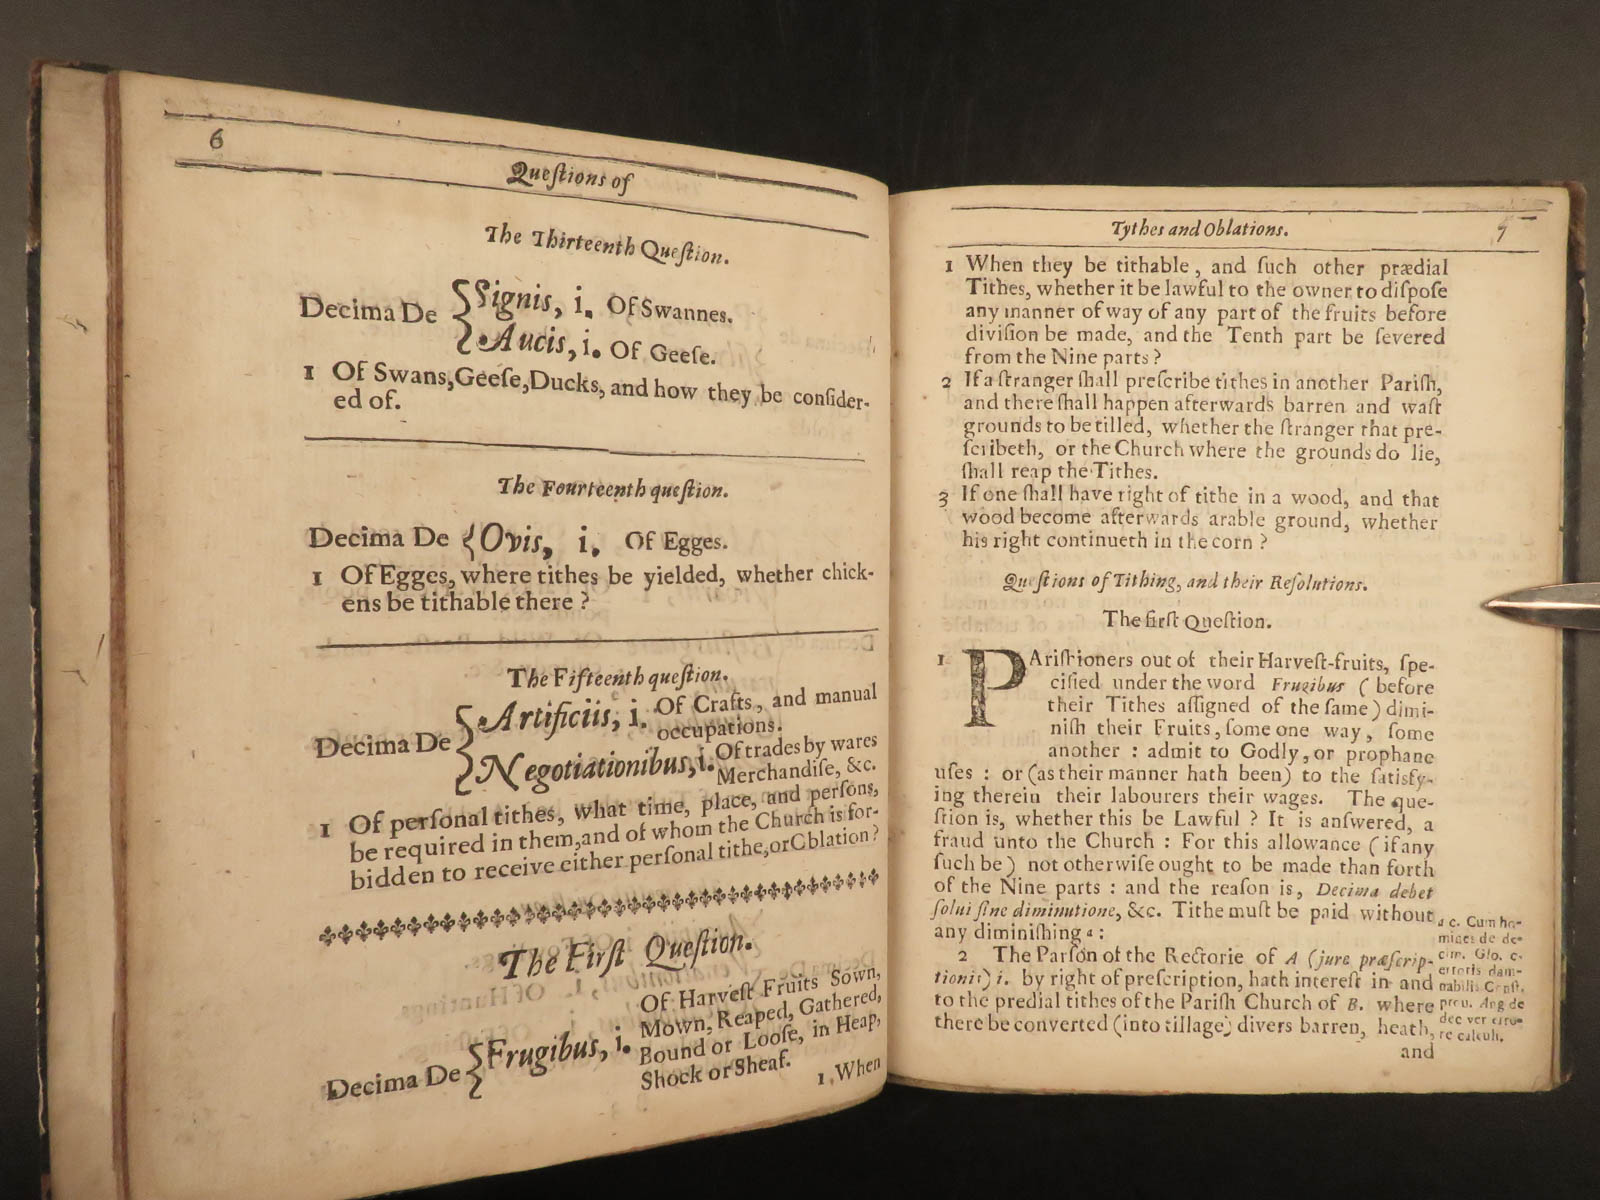 6
Queſtions of
The Thirteenth Queſtion.
Decima De { Signis, i. Of Swannes.
Aucis, i. Of Geeſe.
1 Of Swans, Geeſe, Ducks, and how they be conſider-
ed of.
The Fourteenth queſtion.
Decima De { Ovis, i. Of Egges.
1 Of Egges, where tithes be yielded, whether chick-
ens be tithable there ?
The Fifteenth queſtion.
Decima De { Artificiis, i. Of Crafts, and manual
occupations.
Negotiationibus, i. Of trades by wares
Merchandiſe, &c.
1 Of perſonal tithes, what time, place, and perſons,
be required in them, and of whom the Church is for-
bidden to receive either perſonal tithe, or Oblation ?
The Firſt Queſtion.
Decima De { Frugibus, i. Of Harveſt Fruits Sown,
Mown, Reaped, Gathered,
Bound or Looſe, in Heap,
Shock or Sheaf.
1. When
Tythes and Oblations.
7
1 When they be tithable, and ſuch other prædial
Tithes, whether it be lawful to the owner to diſpoſe
any manner of way of any part of the fruits before
diviſion be made, and the Tenth part be ſevered
from the Nine parts ?
2 If a ſtranger ſhall preſcribe tithes in another Pariſh,
and there ſhall happen afterwards barren and waſt
grounds to be tilled, whether the ſtranger that pre-
ſcribeth, or the Church where the grounds do lie,
ſhall reap the Tithes.
3 If one ſhall have right of tithe in a wood, and that
wood become afterwards arable ground, whether
his right continueth in the corn ?
Queſtions of Tithing, and their Reſolutions.
The firſt Queſtion.
1. PAriſhioners out of their Harveſt-fruits, ſpe-
cified under the word Frugibus ( before
their Tithes aſſigned of the ſame ) dimi-
niſh their Fruits, ſome one way, ſome
another : admit to Godly, or prophane
uſes : or (as their manner hath been) to the ſatisfy-
ing therein their labourers their wages. The que-
ſtion is, whether this be Lawful ? It is anſwered, a
fraud unto the Church : For this allowance ( if any
ſuch be ) not otherwiſe ought to be made than forth
of the Nine parts : and the reaſon is, Decima debet
ſolui ſine diminutione, &c. Tithe muſt be paid without
any diminiſhing a :
2 The Parſon of the Rectorie of A (jure præſcrip-
tionis) i. by right of preſcription, hath intereſt in and
to the predial tithes of the Pariſh Church of B. where
there be converted (into tillage) divers barren, heath,
and
a c. Cum ho-
mines de de-
cim. Glo. c.
erroris dam-
nabilis Conſt.
prov. Ang de
dec ver erro-
re calculi.